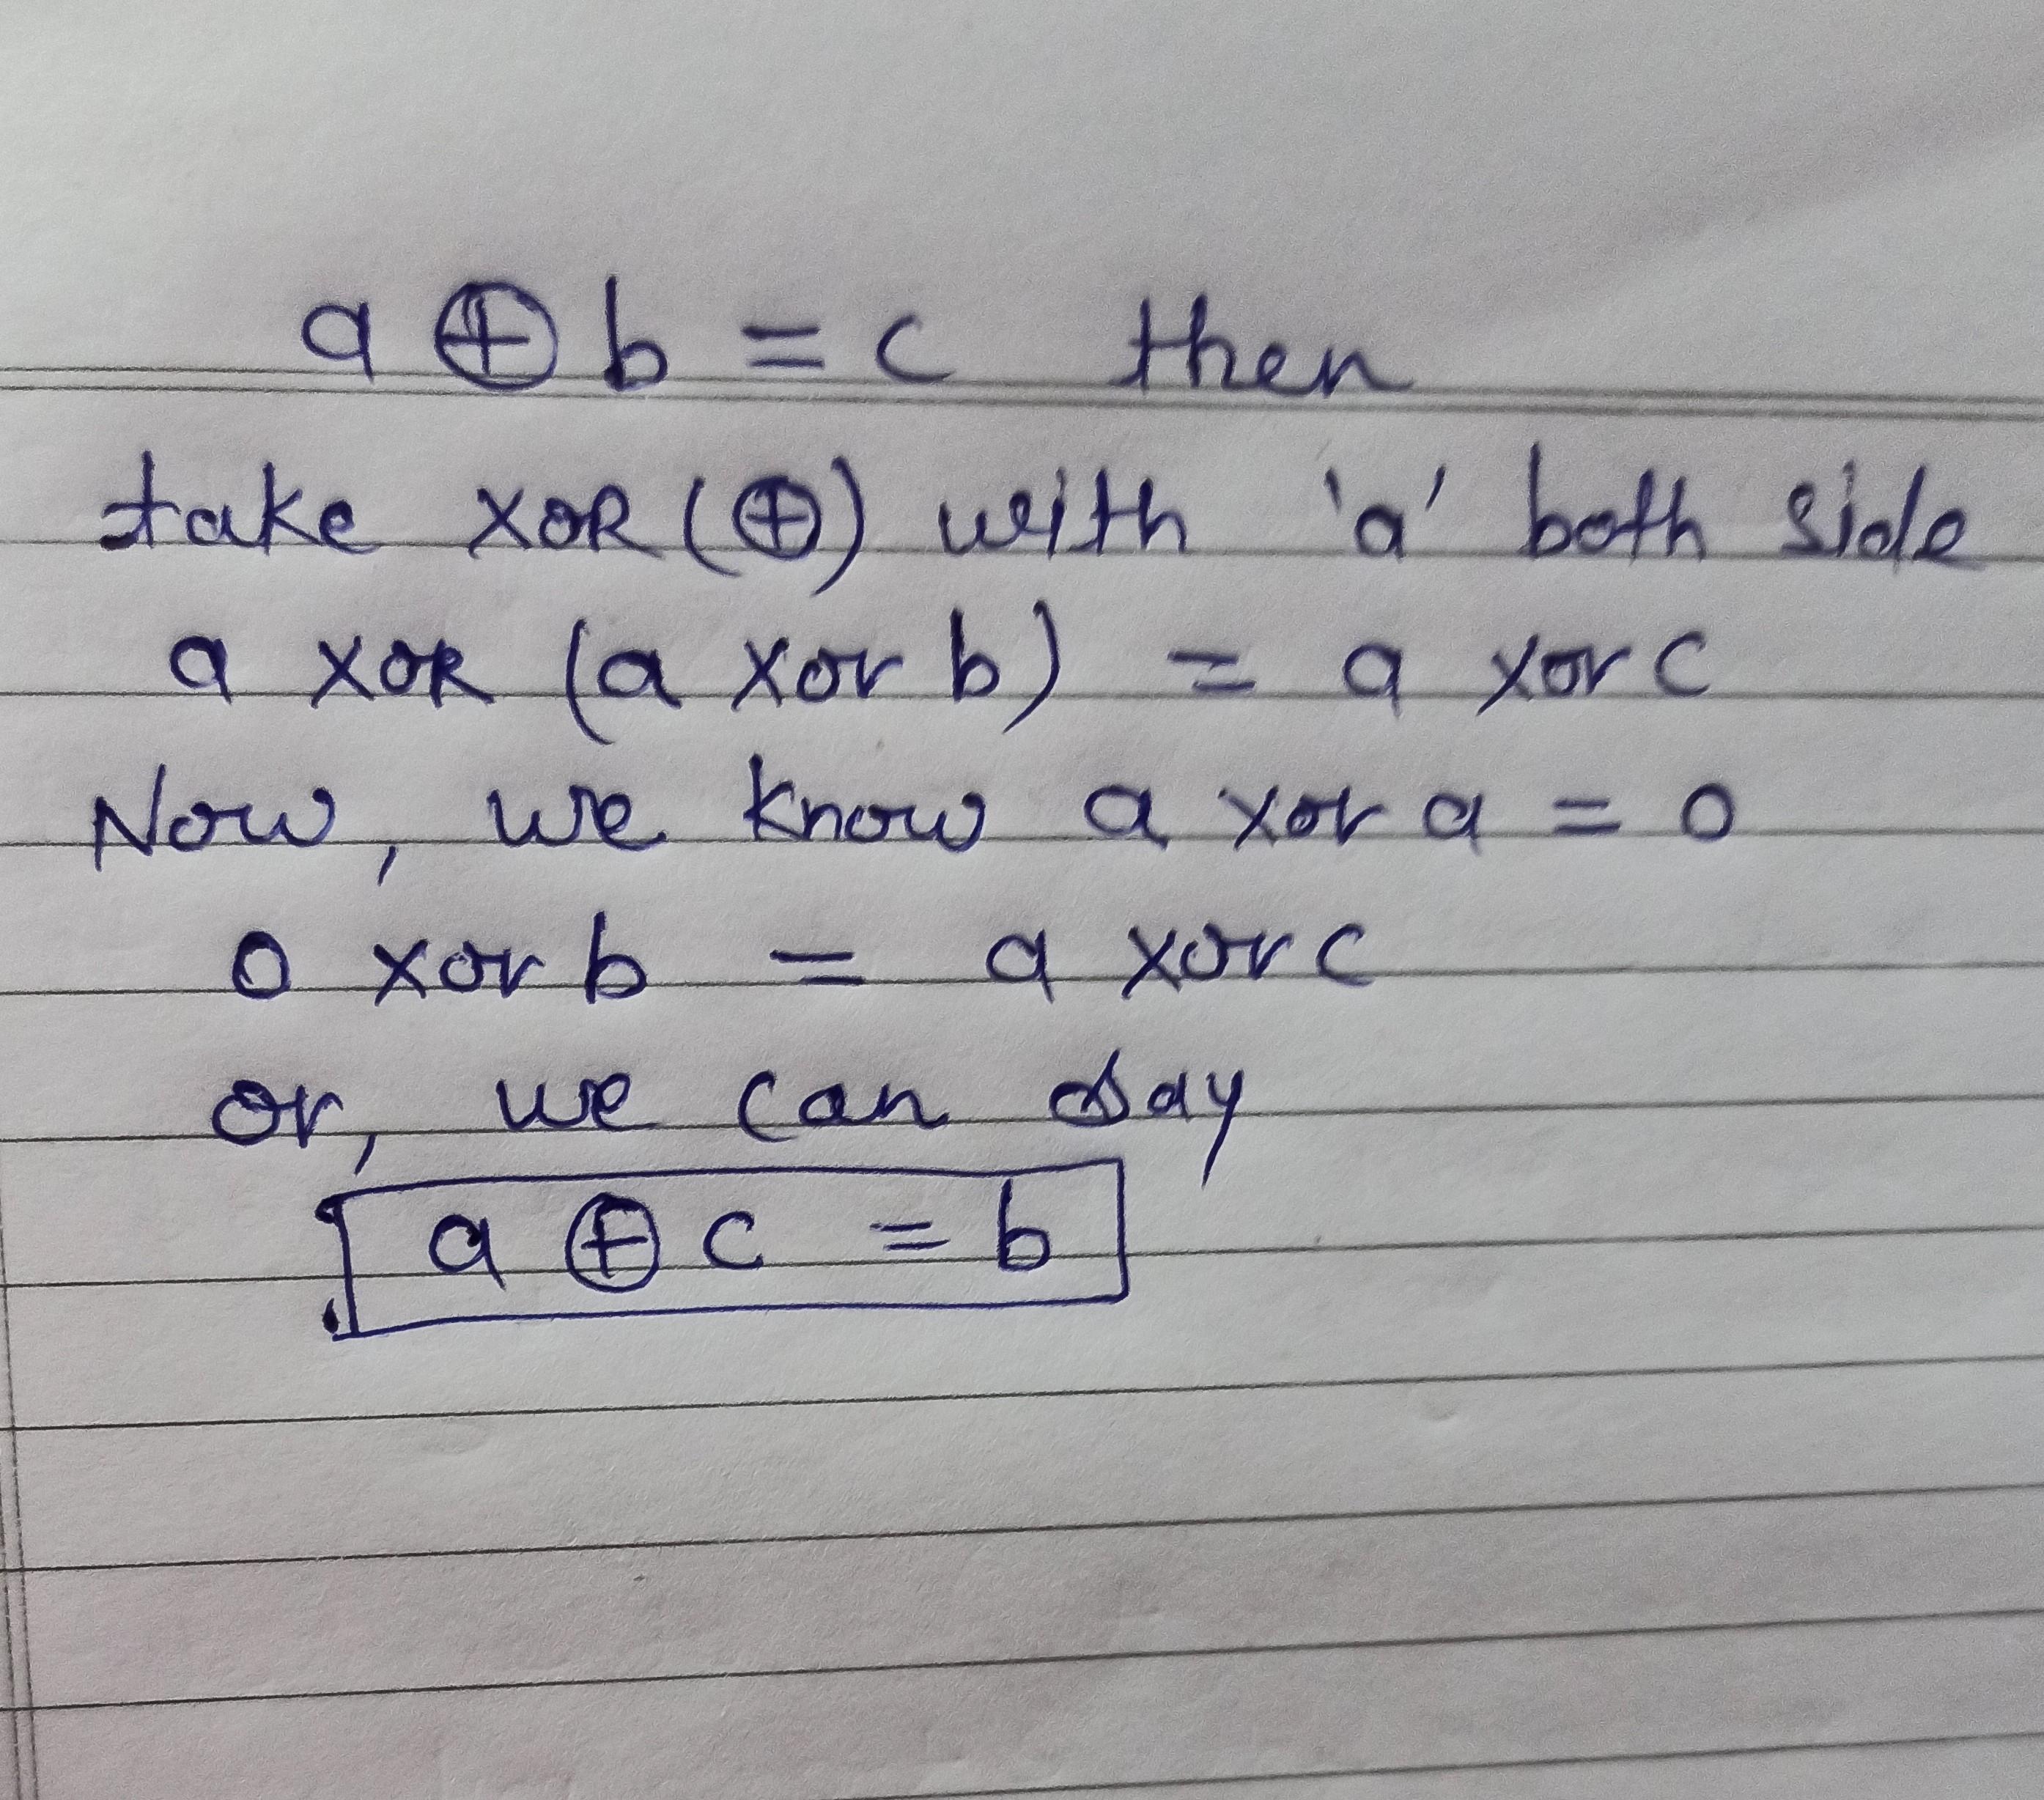 a ⊕ b = c then
take XOR (⊕) with 'a' both side
a XOR (a xor b) = a xor c
Now, we know a xor a = 0
0 xor b = a xor c
or, we can say
a ⊕ c = b